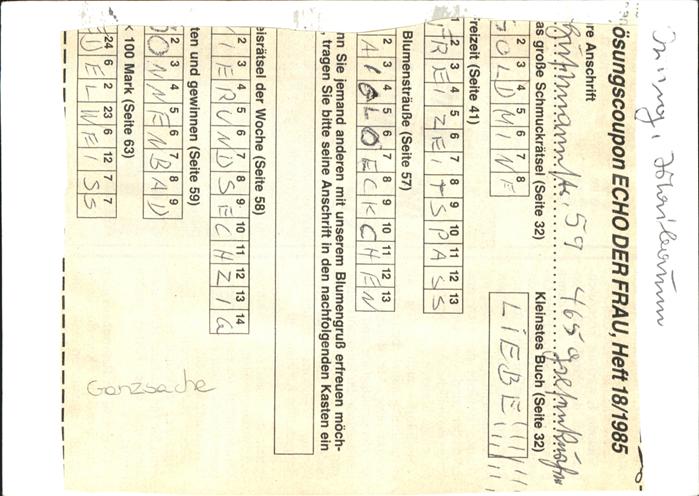 ösungscoupon ECHO DER FRAU, Heft 18/1985
re Anschrift
59 465
as große Schmuckrätsel (Seite 32)
2 3 4 5 6 7 8
OLDMINE
Kleinstes Buch (Seite 32)
LIEBE!!!
reizeit (Seite 41)
1 2 3 4 5 6 7 8 9 10 11 12 13
FREIZEITSPASS
Blumensträuße (Seite 57)
2 3 4 5 6 7 8 9 10 11 12 13
nn Sie jemand anderen mit unserem Blumengruß erfreuen möch-
, tragen Sie bitte seine Anschrift in den nachfolgenden Kasten ein
eisrätsel der Woche (Seite 58)
2 3 4 5 6 7 8 9 10 11 12 13 14
IERUNDSECHZIG
ten und gewinnen (Seite 59)
2 3 4 5 6 7 8 9
ONNENBAD
× 100 Mark (Seite 63)
24 6 2 23 6 12 7 7
EDELWEISS
Ganzsache